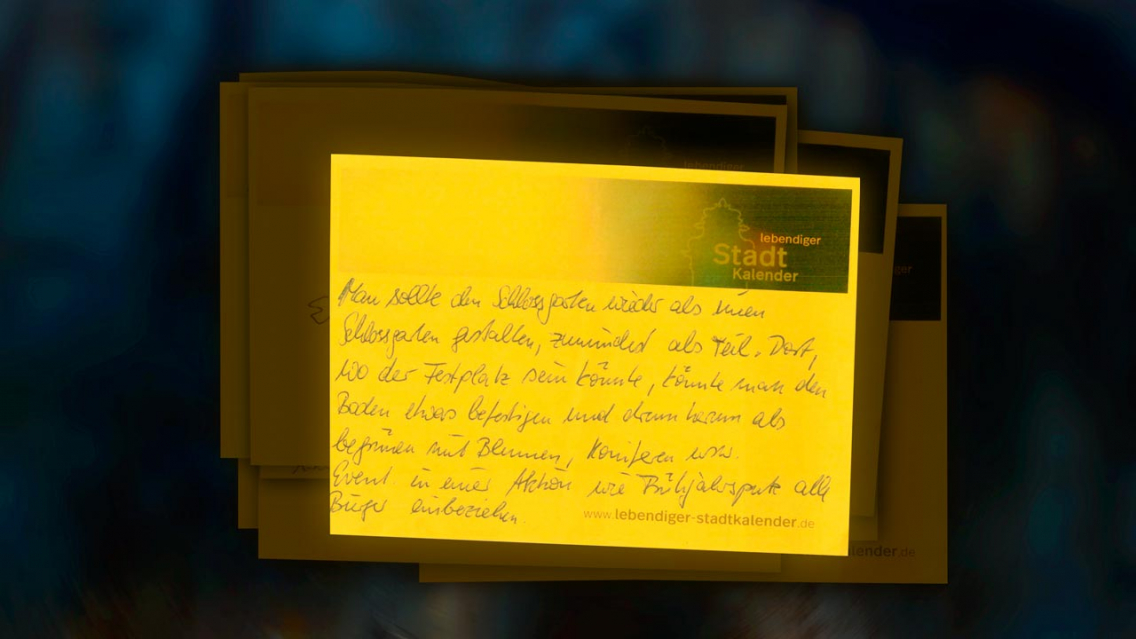 lebendiger
Stadt
Kalender
Man sollte den Schlossgarten wieder als einen
Schlossgarten gestalten, zumindest als Teil. Dort,
wo der Festplatz sein könnte, könnte man den
Boden etwas befestigen und drum herum als
begrünen mit Blumen, Koniferen usw.
Event. in einer Aktion wie Frühjahrsputz alle
Bürger einbeziehen.
www.lebendiger-stadtkalender.de
lebendiger
kalender.de